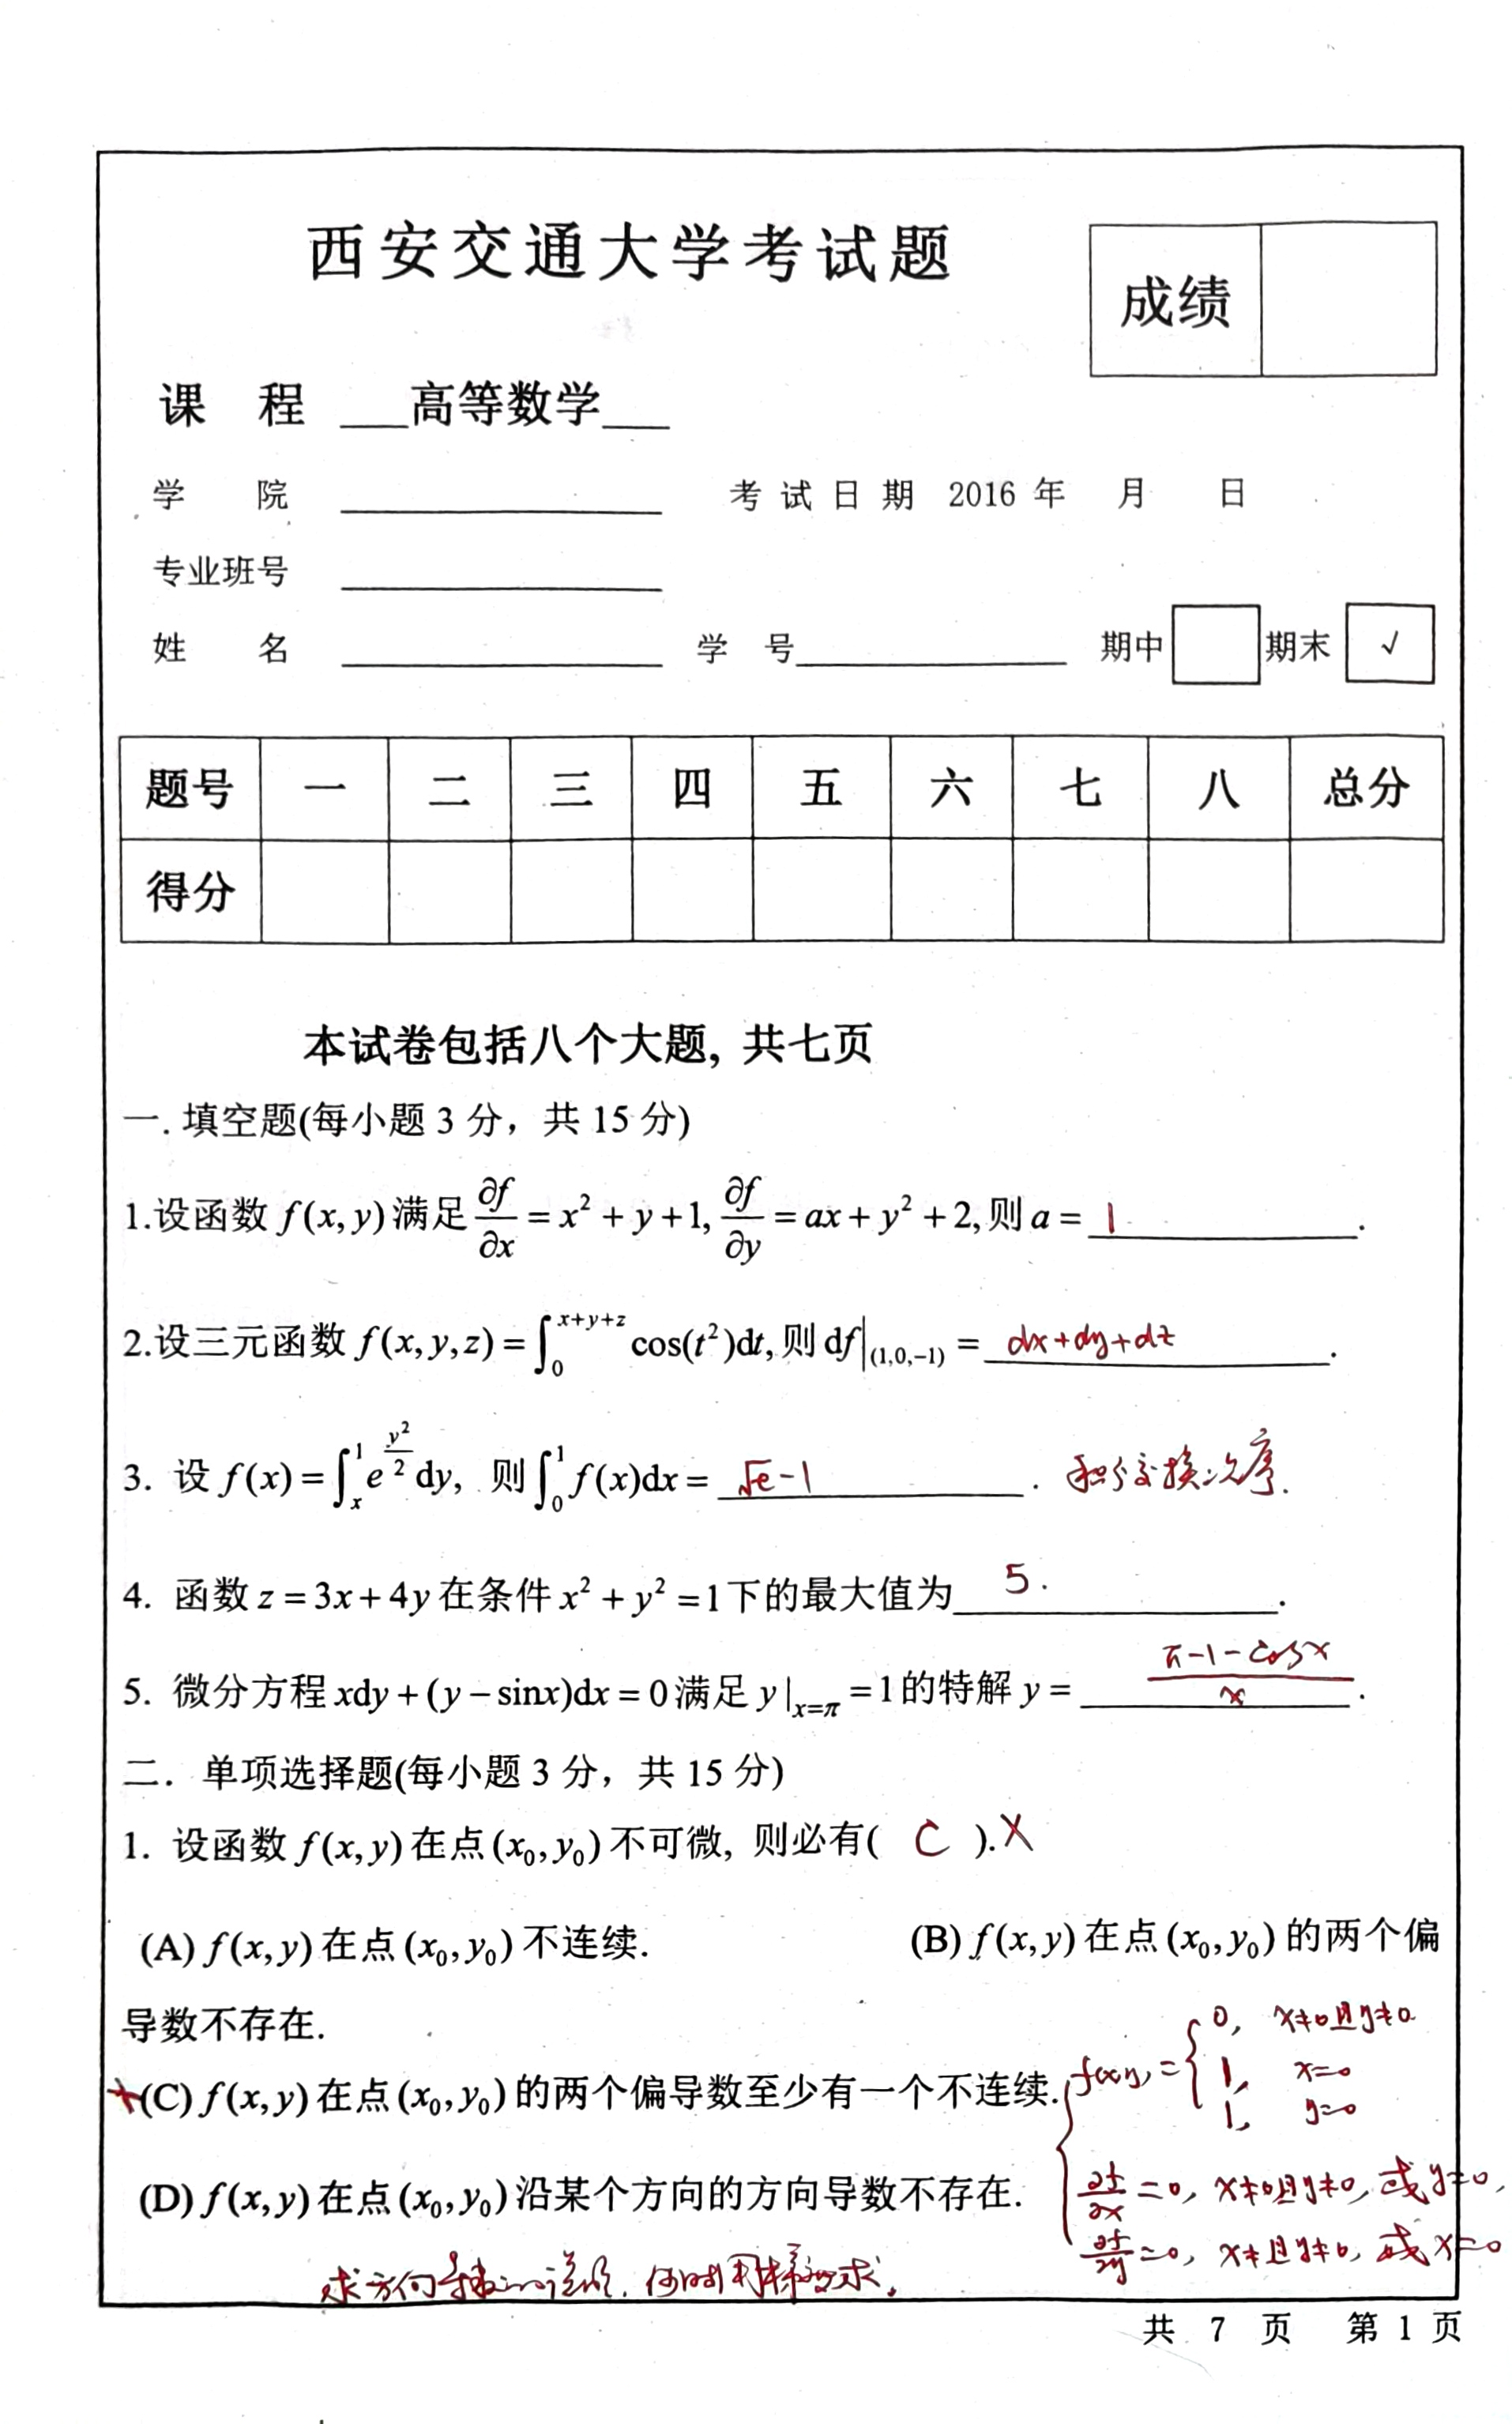 西安交通大学考试题
成绩
课 程 高等数学
学 院 考试日期 2016 年 月 日
专业班号
姓 名 学 号 期中 期末 √
题号 一 二 三 四 五 六 七 八 总分
得分
本试卷包括八个大题, 共七页
一. 填空题(每小题 3 分，共 15 分)
1.设函数 f(x,y) 满足 ∂f/∂x = x² + y + 1, ∂f/∂y = ax + y² + 2, 则 a = 1 .
2.设三元函数 f(x,y,z) = ∫₀^(x+y+z) cos(t²)dt, 则 df|(1,0,−1) = dx+dy+dz .
3. 设 f(x) = ∫ₓ¹ e^(y²/2) dy, 则 ∫₀¹ f(x)dx = √e−1 . 积分交换次序.
4. 函数 z = 3x + 4y 在条件 x² + y² = 1 下的最大值为 5. .
5. 微分方程 xdy + (y − sinx)dx = 0 满足 y|x=π = 1 的特解 y = (π−1−cosx)/x .
二. 单项选择题(每小题 3 分，共 15 分)
1. 设函数 f(x,y) 在点 (x₀,y₀) 不可微, 则必有( C ). ×
(A) f(x,y) 在点 (x₀,y₀) 不连续. (B) f(x,y) 在点 (x₀,y₀) 的两个偏
导数不存在.
(C) f(x,y) 在点 (x₀,y₀) 的两个偏导数至少有一个不连续.
f(x,y) = { 0, x≠0且y≠0
1, x=0
1, y=0
(D) f(x,y) 在点 (x₀,y₀) 沿某个方向的方向导数不存在.
∂f/∂x =0, x≠0且y≠0, 或y=0,
∂f/∂y =0, x≠且y≠0, 或x=0
求方向导数
共 7 页 第 1 页